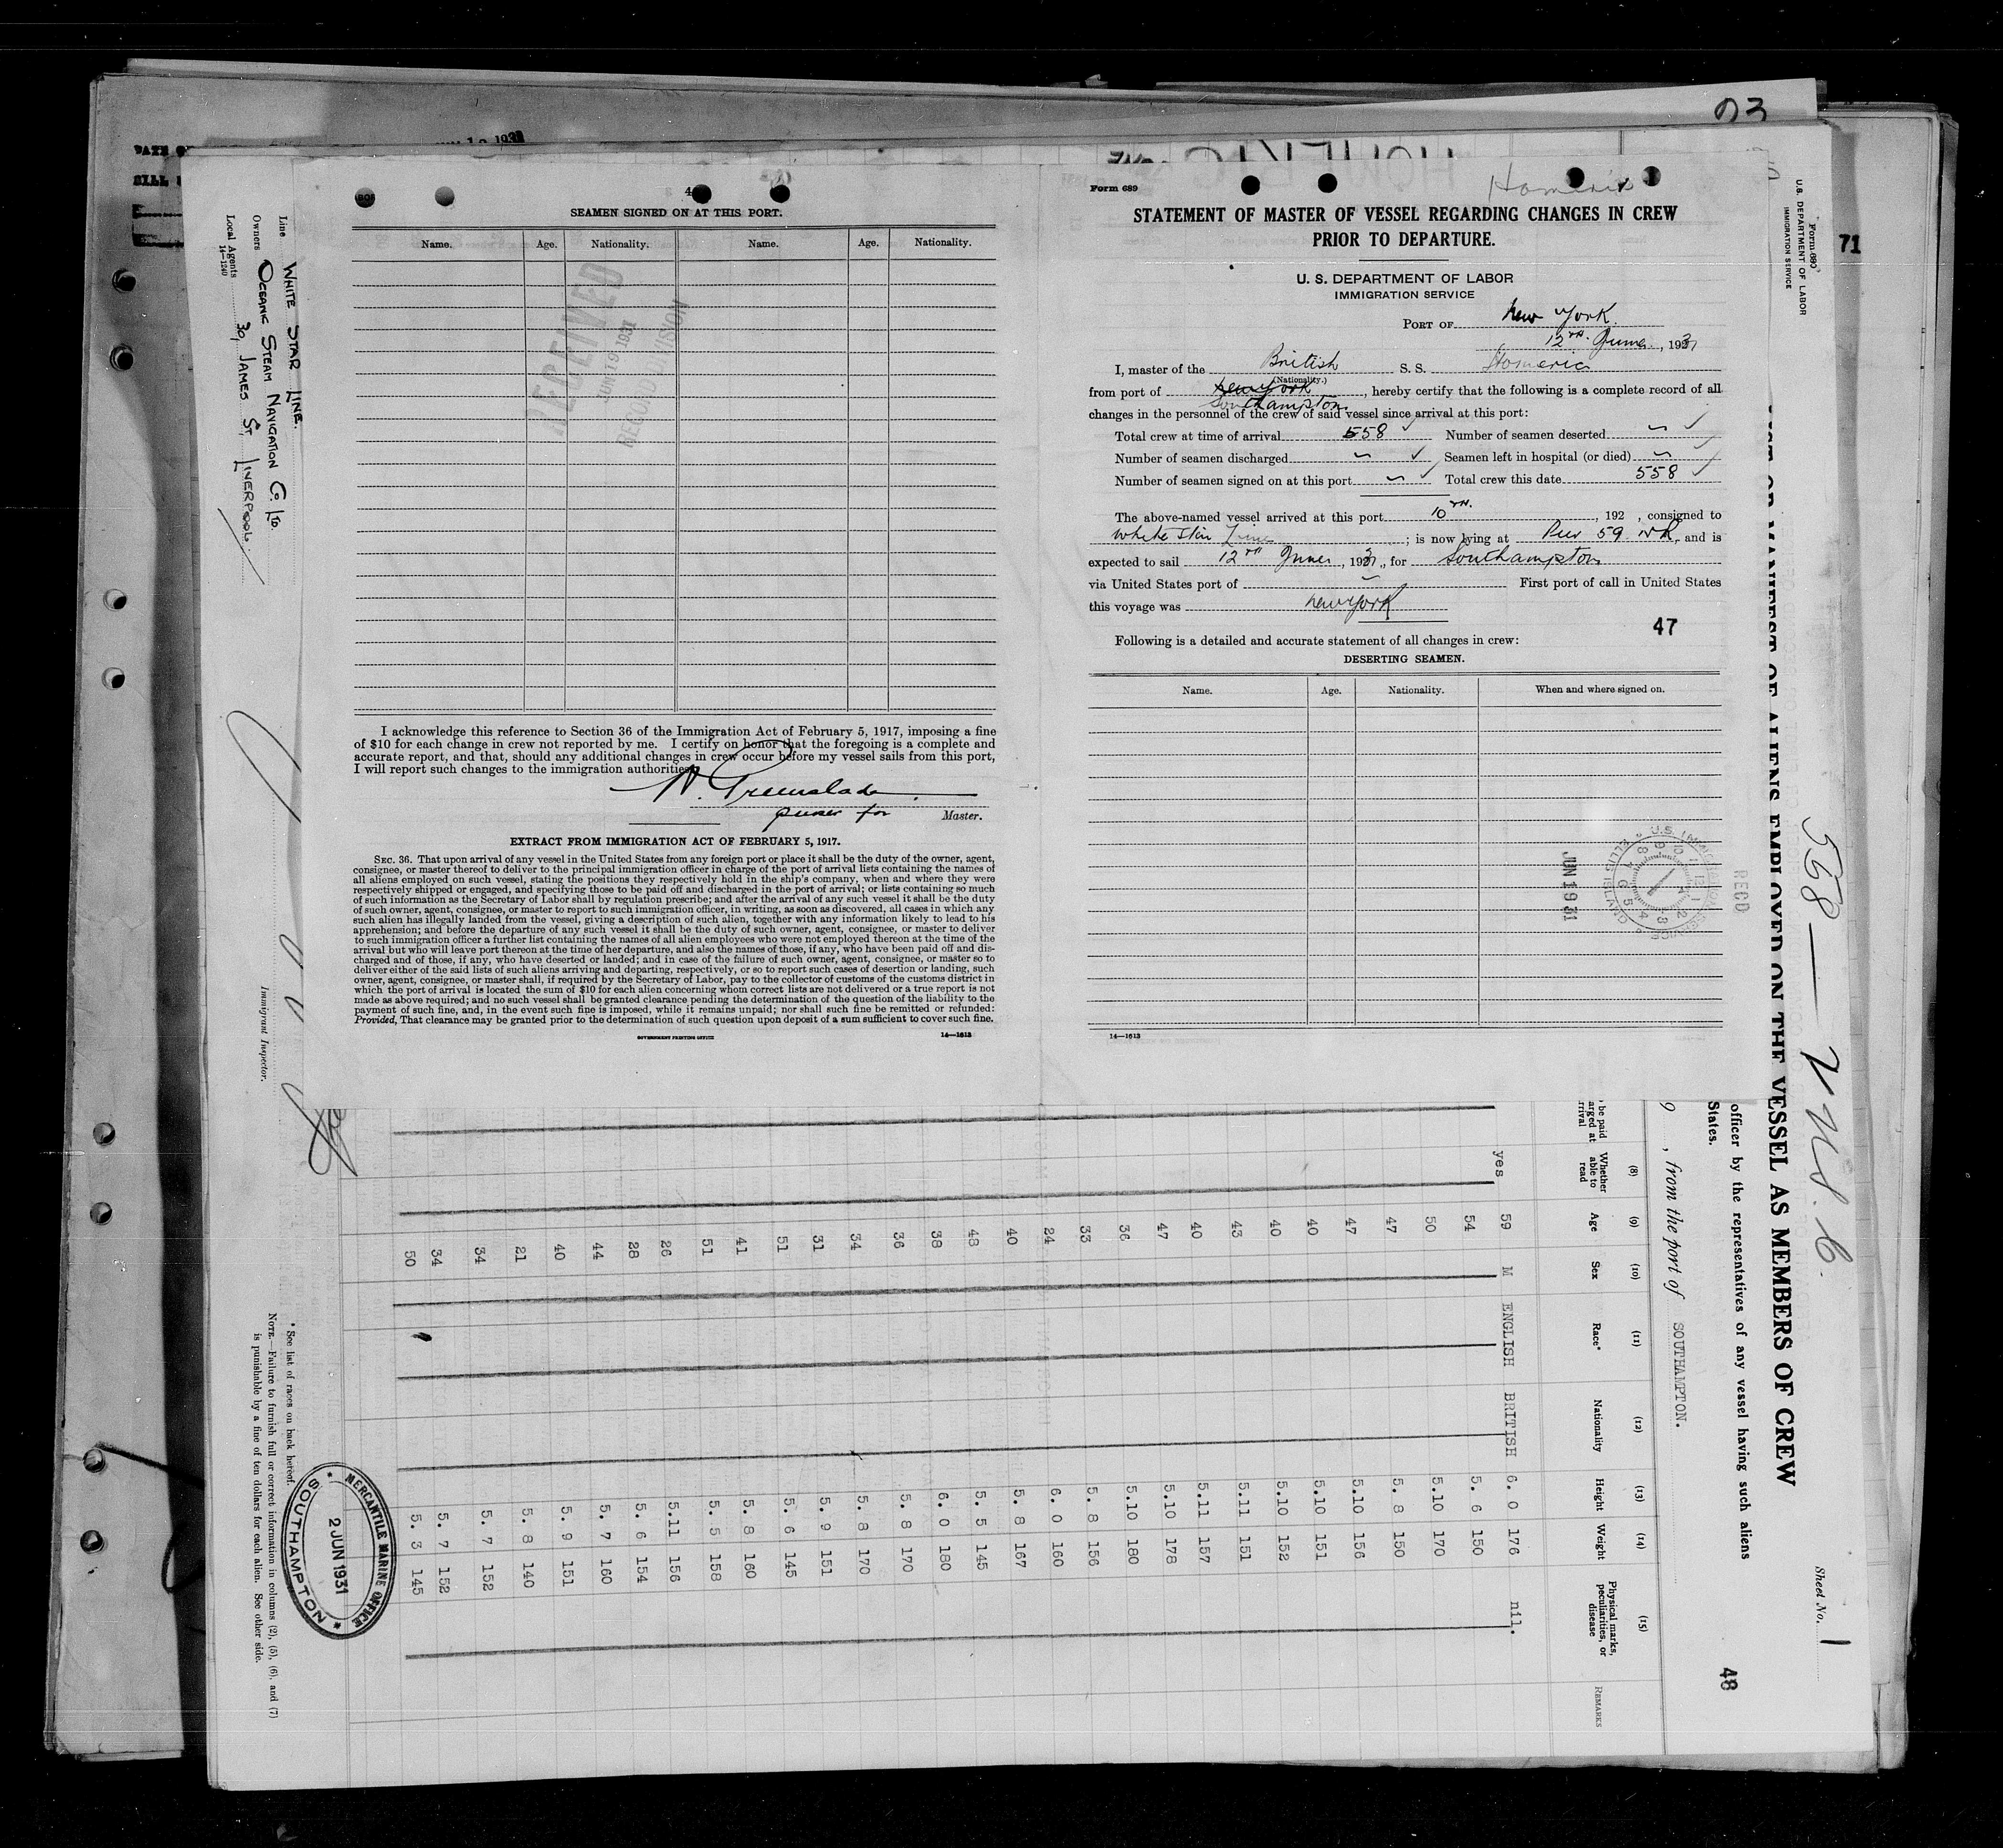 03
71
SEAMEN SIGNED ON AT THIS PORT.
Name. Age. Nationality. Name. Age. Nationality.
RECEIVED
JUN 19 1931
RECORD DIVISION
I acknowledge this reference to Section 36 of the Immigration Act of February 5, 1917, imposing a fine
of $10 for each change in crew not reported by me. I certify on honor that the foregoing is a complete and
accurate report, and that, should any additional changes in crew occur before my vessel sails from this port,
I will report such changes to the immigration authorities.
purser for Master.
EXTRACT FROM IMMIGRATION ACT OF FEBRUARY 5, 1917.
SEC. 36. That upon arrival of any vessel in the United States from any foreign port or place it shall be the duty of the owner, agent,
consignee, or master thereof to deliver to the principal immigration officer in charge of the port of arrival lists containing the names of
all aliens employed on such vessel, stating the positions they respectively hold in the ship's company, when and where they were
respectively shipped or engaged, and specifying those to be paid off and discharged in the port of arrival; or lists containing so much
of such information as the Secretary of Labor shall by regulation prescribe; and after the arrival of any such vessel it shall be the duty
of such owner, agent, consignee, or master to report to such immigration officer, in writing, as soon as discovered, all cases in which any
such alien has illegally landed from the vessel, giving a description of such alien, together with any information likely to lead to his
apprehension; and before the departure of any such vessel it shall be the duty of such owner, agent, consignee, or master to deliver
to such immigration officer a further list containing the names of all alien employees who were not employed thereon at the time of the
arrival but who will leave port thereon at the time of her departure, and also the names of those, if any, who have been paid off and dis-
charged and of those, if any, who have deserted or landed; and in case of the failure of such owner, agent, consignee, or master so to
deliver either of the said lists of such aliens arriving and departing, respectively, or so to report such cases of desertion or landing, such
owner, agent, consignee, or master shall, if required by the Secretary of Labor, pay to the collector of customs of the customs district in
which the port of arrival is located the sum of $10 for each alien concerning whom correct lists are not delivered or a true report is not
made as above required; and no such vessel shall be granted clearance pending the determination of the question of the liability to the
payment of such fine, and, in the event such fine is imposed, while it remains unpaid; nor shall such fine be remitted or refunded:
Provided, That clearance may be granted prior to the determination of such question upon deposit of a sum sufficient to cover such fine.
GOVERNMENT PRINTING OFFICE 14—1613
Form 689
Homeric
STATEMENT OF MASTER OF VESSEL REGARDING CHANGES IN CREW
PRIOR TO DEPARTURE.
U. S. DEPARTMENT OF LABOR
IMMIGRATION SERVICE
PORT OF New York.
12th June, 1931
I, master of the British S. S. Homeric
(Nationality.)
from port of New York Southampton, hereby certify that the following is a complete record of all
changes in the personnel of the crew of said vessel since arrival at this port:
Total crew at time of arrival 558 Number of seamen deserted
Number of seamen discharged Seamen left in hospital (or died)
Number of seamen signed on at this port Total crew this date 558
The above-named vessel arrived at this port 10th, 192 , consigned to
White Star Line; is now lying at Pier 59 NR, and is
expected to sail 12th June, 1931, for Southampton
via United States port of First port of call in United States
this voyage was New York
47
Following is a detailed and accurate statement of all changes in crew:
DESERTING SEAMEN.
Name. Age. Nationality. When and where signed on.
JUN 19 31
RECD
14—1613
Line WHITE STAR LINE.
Owners OCEANIC STEAM NAVIGATION Co. LTD.
Local Agents 30, JAMES ST, LIVERPOOL.
14—1240
Immigrant Inspector.
Form 680
U. S. DEPARTMENT OF LABOR
IMMIGRATION SERVICE
OF ALIENS EMPLOYED ON THE VESSEL AS MEMBERS OF CREW
568
Sheet No. 1
officer by the representatives of any vessel having such aliens
States.
48
9 , from the port of SOUTHAMPTON.
(8) (9) (10) (11) (12) (13) (14) (15)
be paid
arged at
rrival
Whether able to read Age Sex Race* Nationality Height Weight Physical marks, peculiarities, or disease REMARKS
yes 59 M ENGLISH BRITISH 6. 0 176 nil.
54 5. 6 150
50 5.10 170
47 5. 8 150
47 5.10 156
40 5.10 151
40 5.10 152
43 5.11 151
40 5.11 157
47 5.10 178
36 5.10 180
33 5. 8 156
24 6. 0 160
40 5. 8 167
48 5. 5 145
38 6. 0 180
36 5. 8 170
34 5. 8 170
31 5. 9 151
51 5. 6 145
41 5. 8 160
51 5. 5 158
26 5.11 156
28 5. 6 154
44 5. 7 160
40 5. 9 151
21 5. 8 140
34 5. 7 152
34 5. 7 152
50 5. 3 145
* See list of races on back hereof.
NOTE.—Failure to furnish full or correct information in columns (2), (5), (6), and (7)
is punishable by a fine of ten dollars for each alien. See other side.
MERCANTILE MARINE OFFICE
2 JUN 1931
SOUTHAMPTON